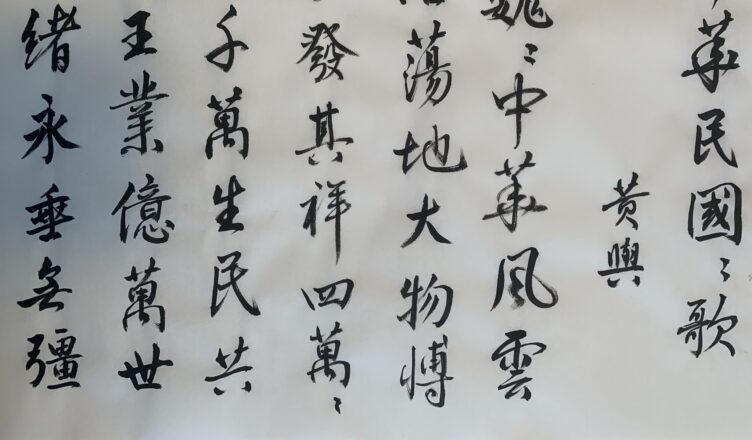 華民國〻歌
黄興
巍〻中華風雲
蕩地大物愽
發其祥四萬〻
千萬生民共
王業億萬世
緒永垂無疆